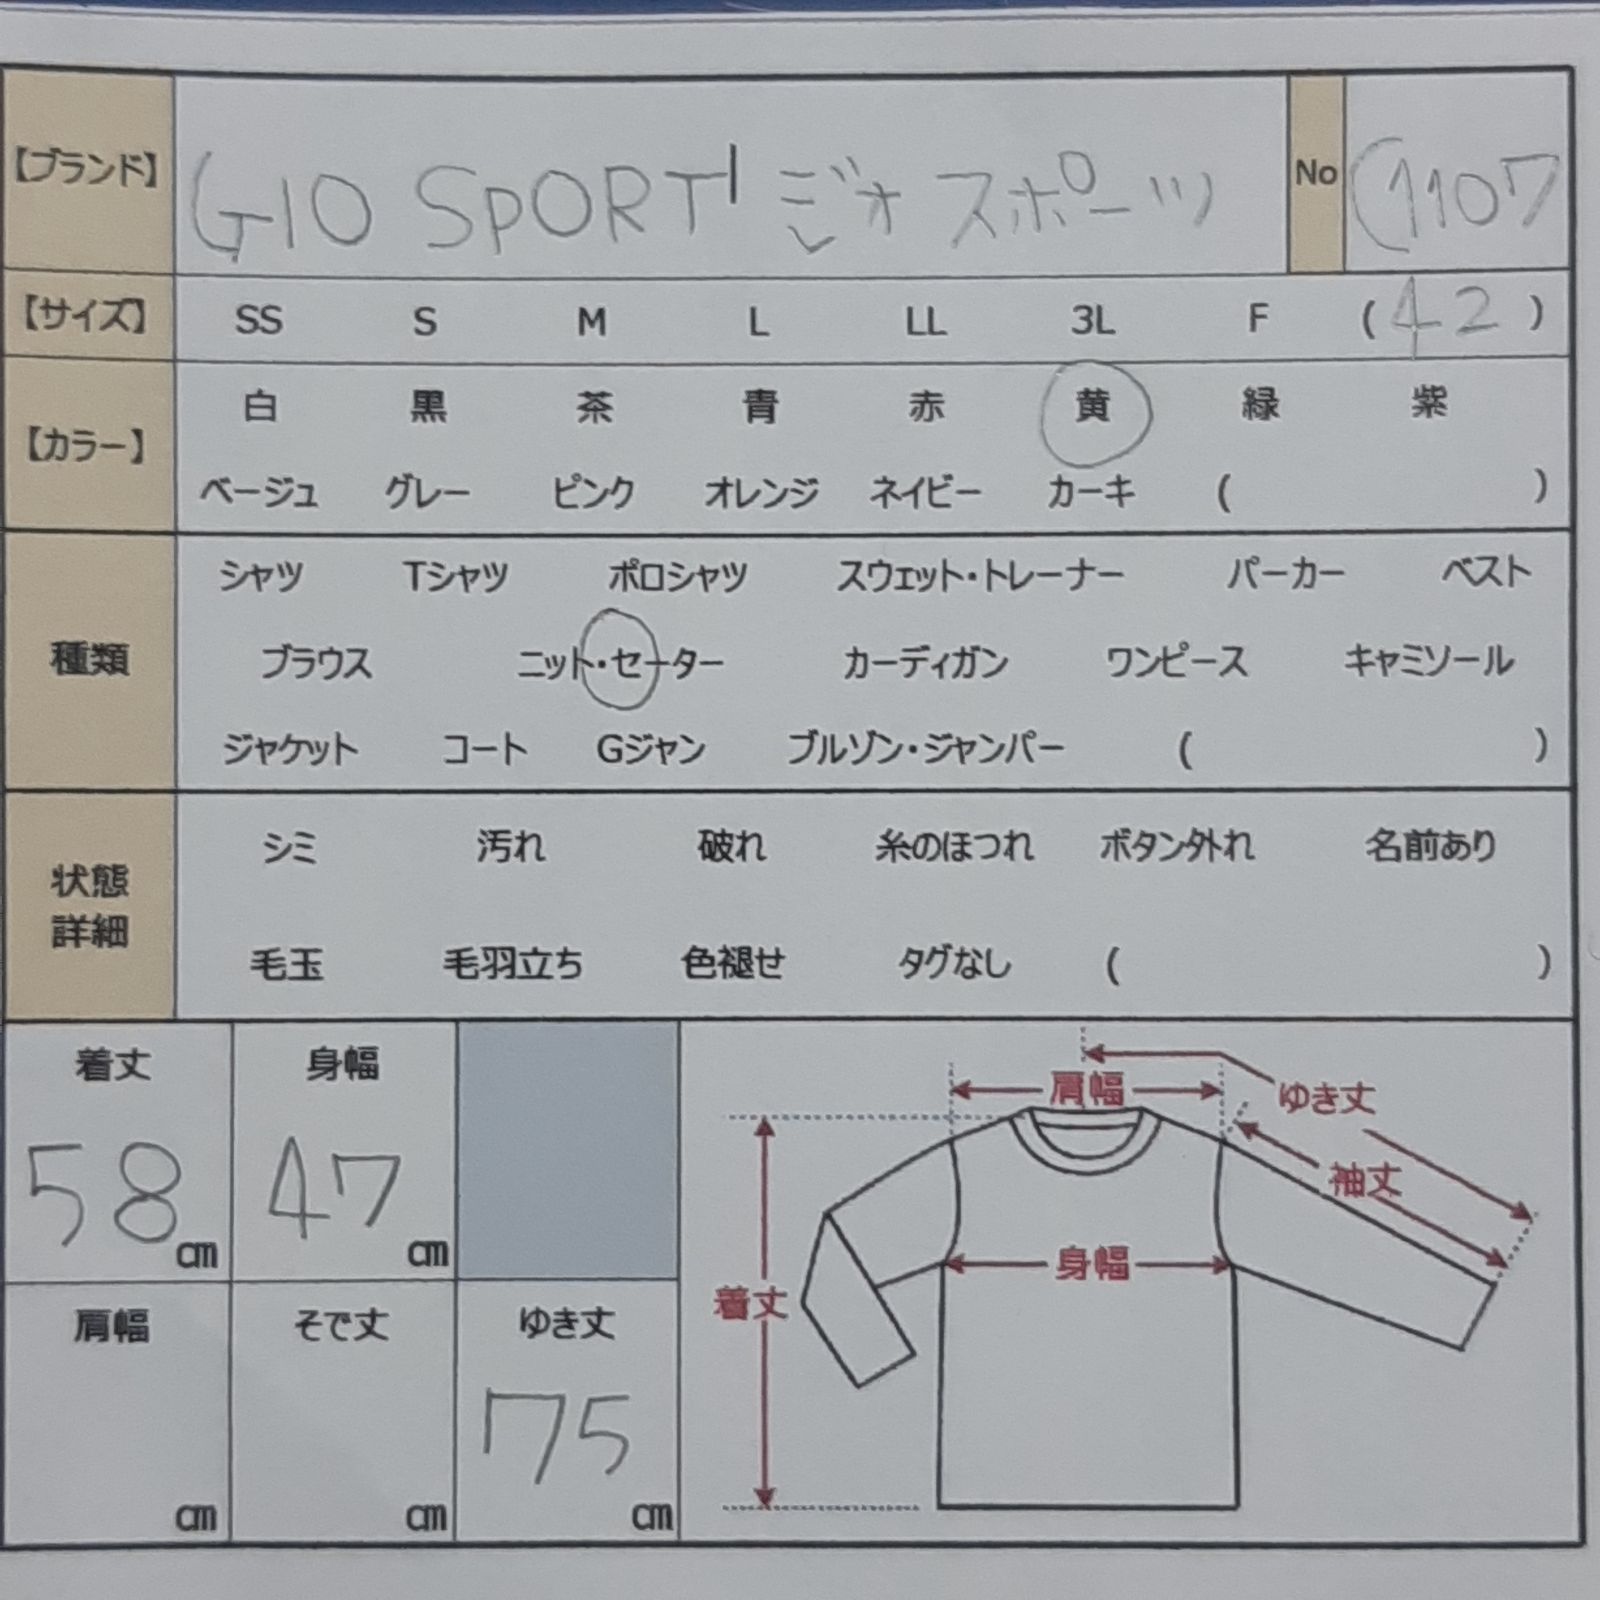 【ブランド】 GIO SPORT ジオスポーツ No C1107
【サイズ】 SS S M L LL 3L F (42)
白 黒 茶 青 赤 黄 緑 紫
【カラー】
ベージュ グレー ピンク オレンジ ネイビー カーキ ( )
シャツ Tシャツ ポロシャツ スウェット・トレーナー パーカー ベスト
種類 ブラウス ニット・セーター カーディガン ワンピース キャミソール
ジャケット コート Gジャン ブルゾン・ジャンパー ( )
シミ 汚れ 破れ 糸のほつれ ボタン外れ 名前あり
状態
詳細
毛玉 毛羽立ち 色褪せ タグなし ( )
着丈 身幅
58cm 47cm
肩幅 そで丈 ゆき丈
cm cm 75cm
肩幅 ゆき丈
袖丈
身幅
着丈